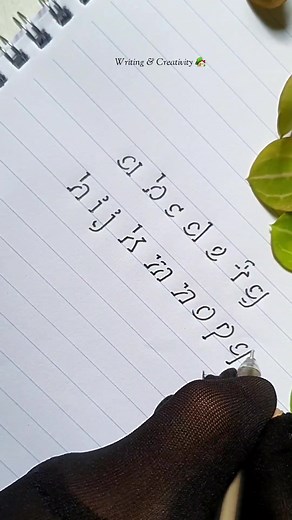 Writing & Creativity
a b c d e f g
h i j k m n o p q